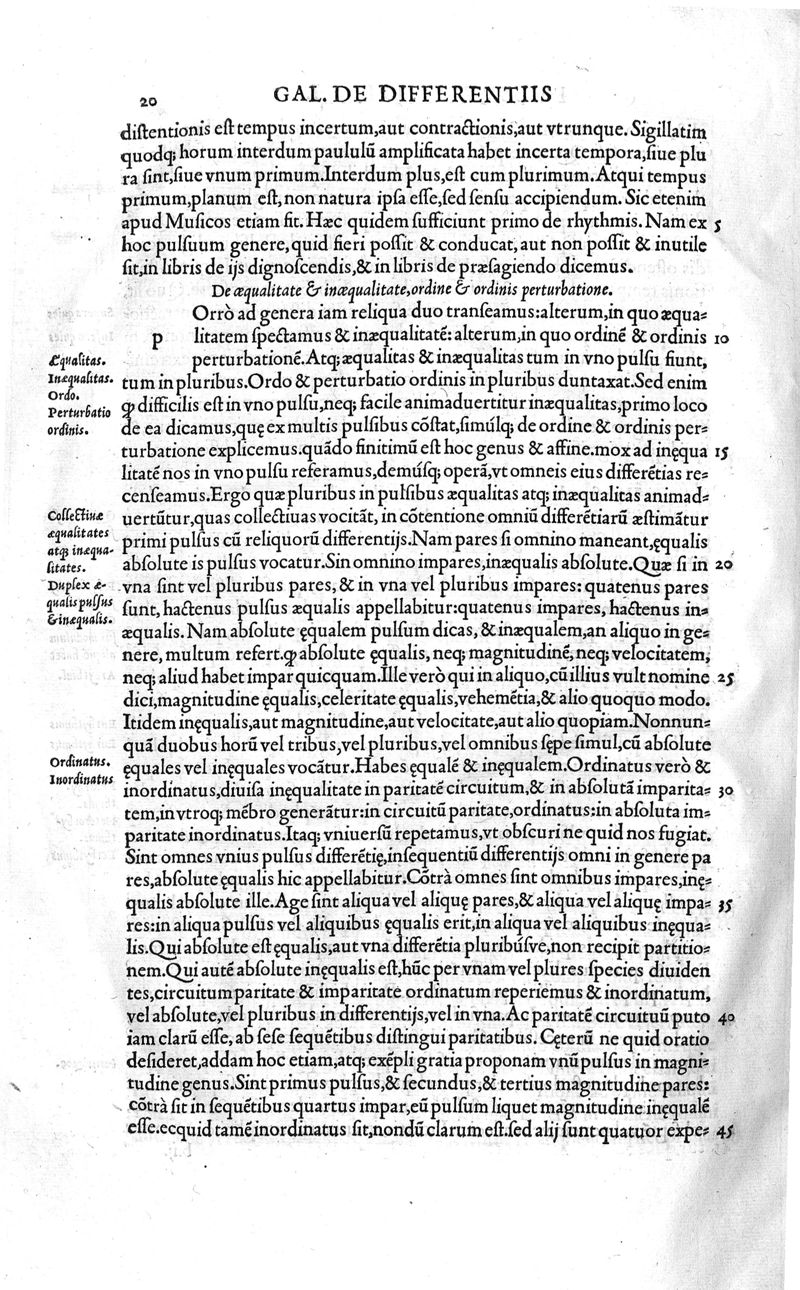 20 GAL. DE DIFFERENTIIS
distentionis est tempus incertum,aut contractionis,aut vtrunque. Sigillatim
quodq; horum interdum paululũ amplificata habet incerta tempora,siue plu
ra sint,siue vnum primum.Interdum plus,est cum plurimum. Atqui tempus
primum,planum est, non natura ipsa esse,sed sensu accipiendum. Sic etenim
apud Musicos etiam fit. Hæc quidem sufficiunt primo de rhythmis. Nam ex 5
hoc pulsuum genere,quid fieri possit & conducat, aut non possit & inutile
sit,in libris de ijs dignoscendis,& in libris de præsagiendo dicemus.
De æqualitate & inæqualitate,ordine & ordinis perturbatione.
P Orrò ad genera iam reliqua duo transeamus:alterum,in quo æqua=
litatem spectamus & inæqualitatẽ: alterum,in quo ordinẽ & ordinis 10
perturbationẽ. Atq; æqualitas & inæqualitas tum in vno pulsu fiunt,
tum in pluribus.Ordo & perturbatio ordinis in pluribus duntaxat.Sed enim
ꝙ difficilis est in vno pulsu,neq; facile animaduertitur inæqualitas,primo loco
de ea dicamus,quę ex multis pulsibus cõstat,simúlq; de ordine & ordinis per=
turbatione explicemus.quãdo finitimũ est hoc genus & affine.mox ad inęqua 15
litatẽ nos in vno pulsu referamus,demúsq; operã,vt omneis eius differẽtias re=
censeamus.Ergo quæ pluribus in pulsibus æqualitas atq; inæqualitas animad=
uertũtur,quas collectiuas vocitãt, in cõtentione omniũ differẽtiarũ æstimãtur
primi pulsus cũ reliquorũ differentijs. Nam pares si omnino maneant,ęqualis
absolute is pulsus vocatur.Sin omnino impares,inæqualis absolute.Quæ si in 20
vna sint vel pluribus pares, & in vna vel pluribus impares: quatenus pares
sunt, hactenus pulsus æqualis appellabitur:quatenus impares, hactenus in=
æqualis. Nam absolute ęqualem pulsum dicas, & inæqualem,an aliquo in ge=
nere, multum refert.ꝙ absolute ęqualis, neq; magnitudinẽ, neq; velocitatem,
neq; aliud habet impar quicquam.Ille verò qui in aliquo,cũ illius vult nomine 25
dici,magnitudine ęqualis,celeritate ęqualis,vehemẽtia,& alio quoquo modo.
Itidem inęqualis,aut magnitudine,aut velocitate,aut alio quopiam.Nonnun=
quã duobus horũ vel tribus,vel pluribus,vel omnibus sępe simul,cũ absolute
ęquales vel inęquales vocãtur.Habes ęqualẽ & inęqualem.Ordinatus verò &
inordinatus,diuisa inęqualitate in paritatẽ circuitum,& in absolutã imparita= 30
tem,in vtroq; mẽbro generãtur:in circuitũ paritate,ordinatus:in absoluta im=
paritate inordinatus.Itaq; vniuersũ repetamus,vt obscuri ne quid nos fugiat.
Sint omnes vnius pulsus differẽtię,insequentiũ differentijs omni in genere pa
res,absolute ęqualis hic appellabitur.Cõtrà omnes sint omnibus impares,inę=
qualis absolute ille. Age sint aliqua vel aliquę pares,& aliqua vel aliquę impa= 35
res:in aliqua pulsus vel aliquibus ęqualis erit,in aliqua vel aliquibus inęqua=
lis.Qui absolute est ęqualis,aut vna differẽtia pluribúsve,non recipit partitio=
nem.Qui autẽ absolute inęqualis est,hũc per vnam vel plures species diuiden
tes,circuitum paritate & imparitate ordinatum reperiemus & inordinatum,
vel absolute,vel pluribus in differentijs,vel in vna. Ac paritatẽ circuituũ puto 40
iam clarũ esse, ab sese sequẽtibus distingui paritatibus. Cęterũ ne quid oratio
desideret,addam hoc etiam,atq; exẽpli gratia proponam vnũ pulsus in magni=
tudine genus.Sint primus pulsus,& secundus,& tertius magnitudine pares:
cõtrà sit in sequẽtibus quartus impar,eũ pulsum liquet magnitudine inęqualẽ
esse.ecquid tamẽ inordinatus sit,nondũ clarum est.sed alij sunt quatuor expe= 45
Æqualitas.
Inæqualitas.
Ordo.
Perturbatio
ordinis.
Collectiuæ
æqualitates
atq; inæqua-
litates.
Duplex æ-
qualis pulsus
& inæqualis.
Ordinatus.
Inordinatus